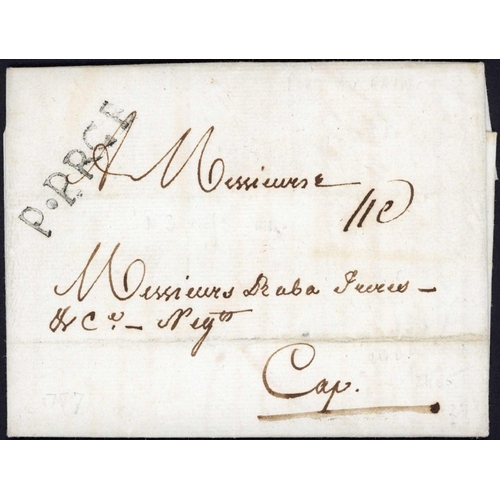 P.PRGE
A Messieurs
11e
Messieurs Raba freres –
& Cie – Negts
Cap.
777